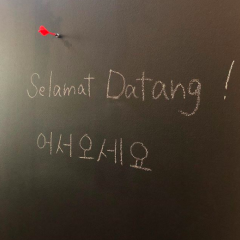 Selamat Datang !
어서오세요